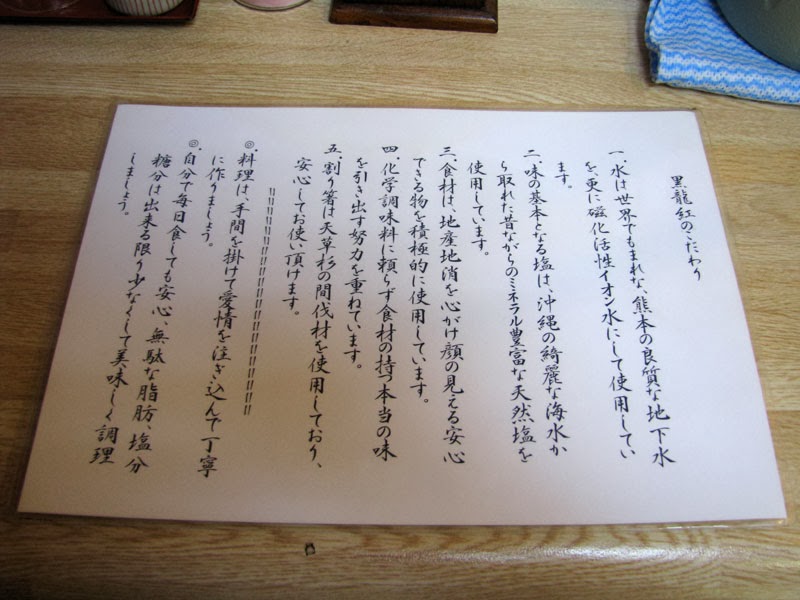 黒龍紅のこだわり
一、水は世界でもまれな、熊本の良質な地下水
を、更に磁化活性イオン水にして使用してい
ます。
二、味の基本となる塩は、沖縄の綺麗な海水か
ら取れた昔ながらのミネラル豊富な天然塩を
使用しています。
三、食材は、地産地消を心がけ顔の見える安心
できる物を積極的に使用しています。
四、化学調味料に頼らず食材の持つ本当の味
を引き出す努力を重ねています。
五、割り箸は天草杉の間伐材を使用しており、
安心してお使い頂けます。
〃〃〃〃〃〃〃〃〃〃〃〃〃〃〃〃〃〃
◎料理は、手間を掛けて愛情を注ぎ込んで丁寧
に作りましょう。
◎自分で毎日食しても安心、無駄な脂肪、塩分
糖分は出来る限り少なくして美味しく調理
しましょう。